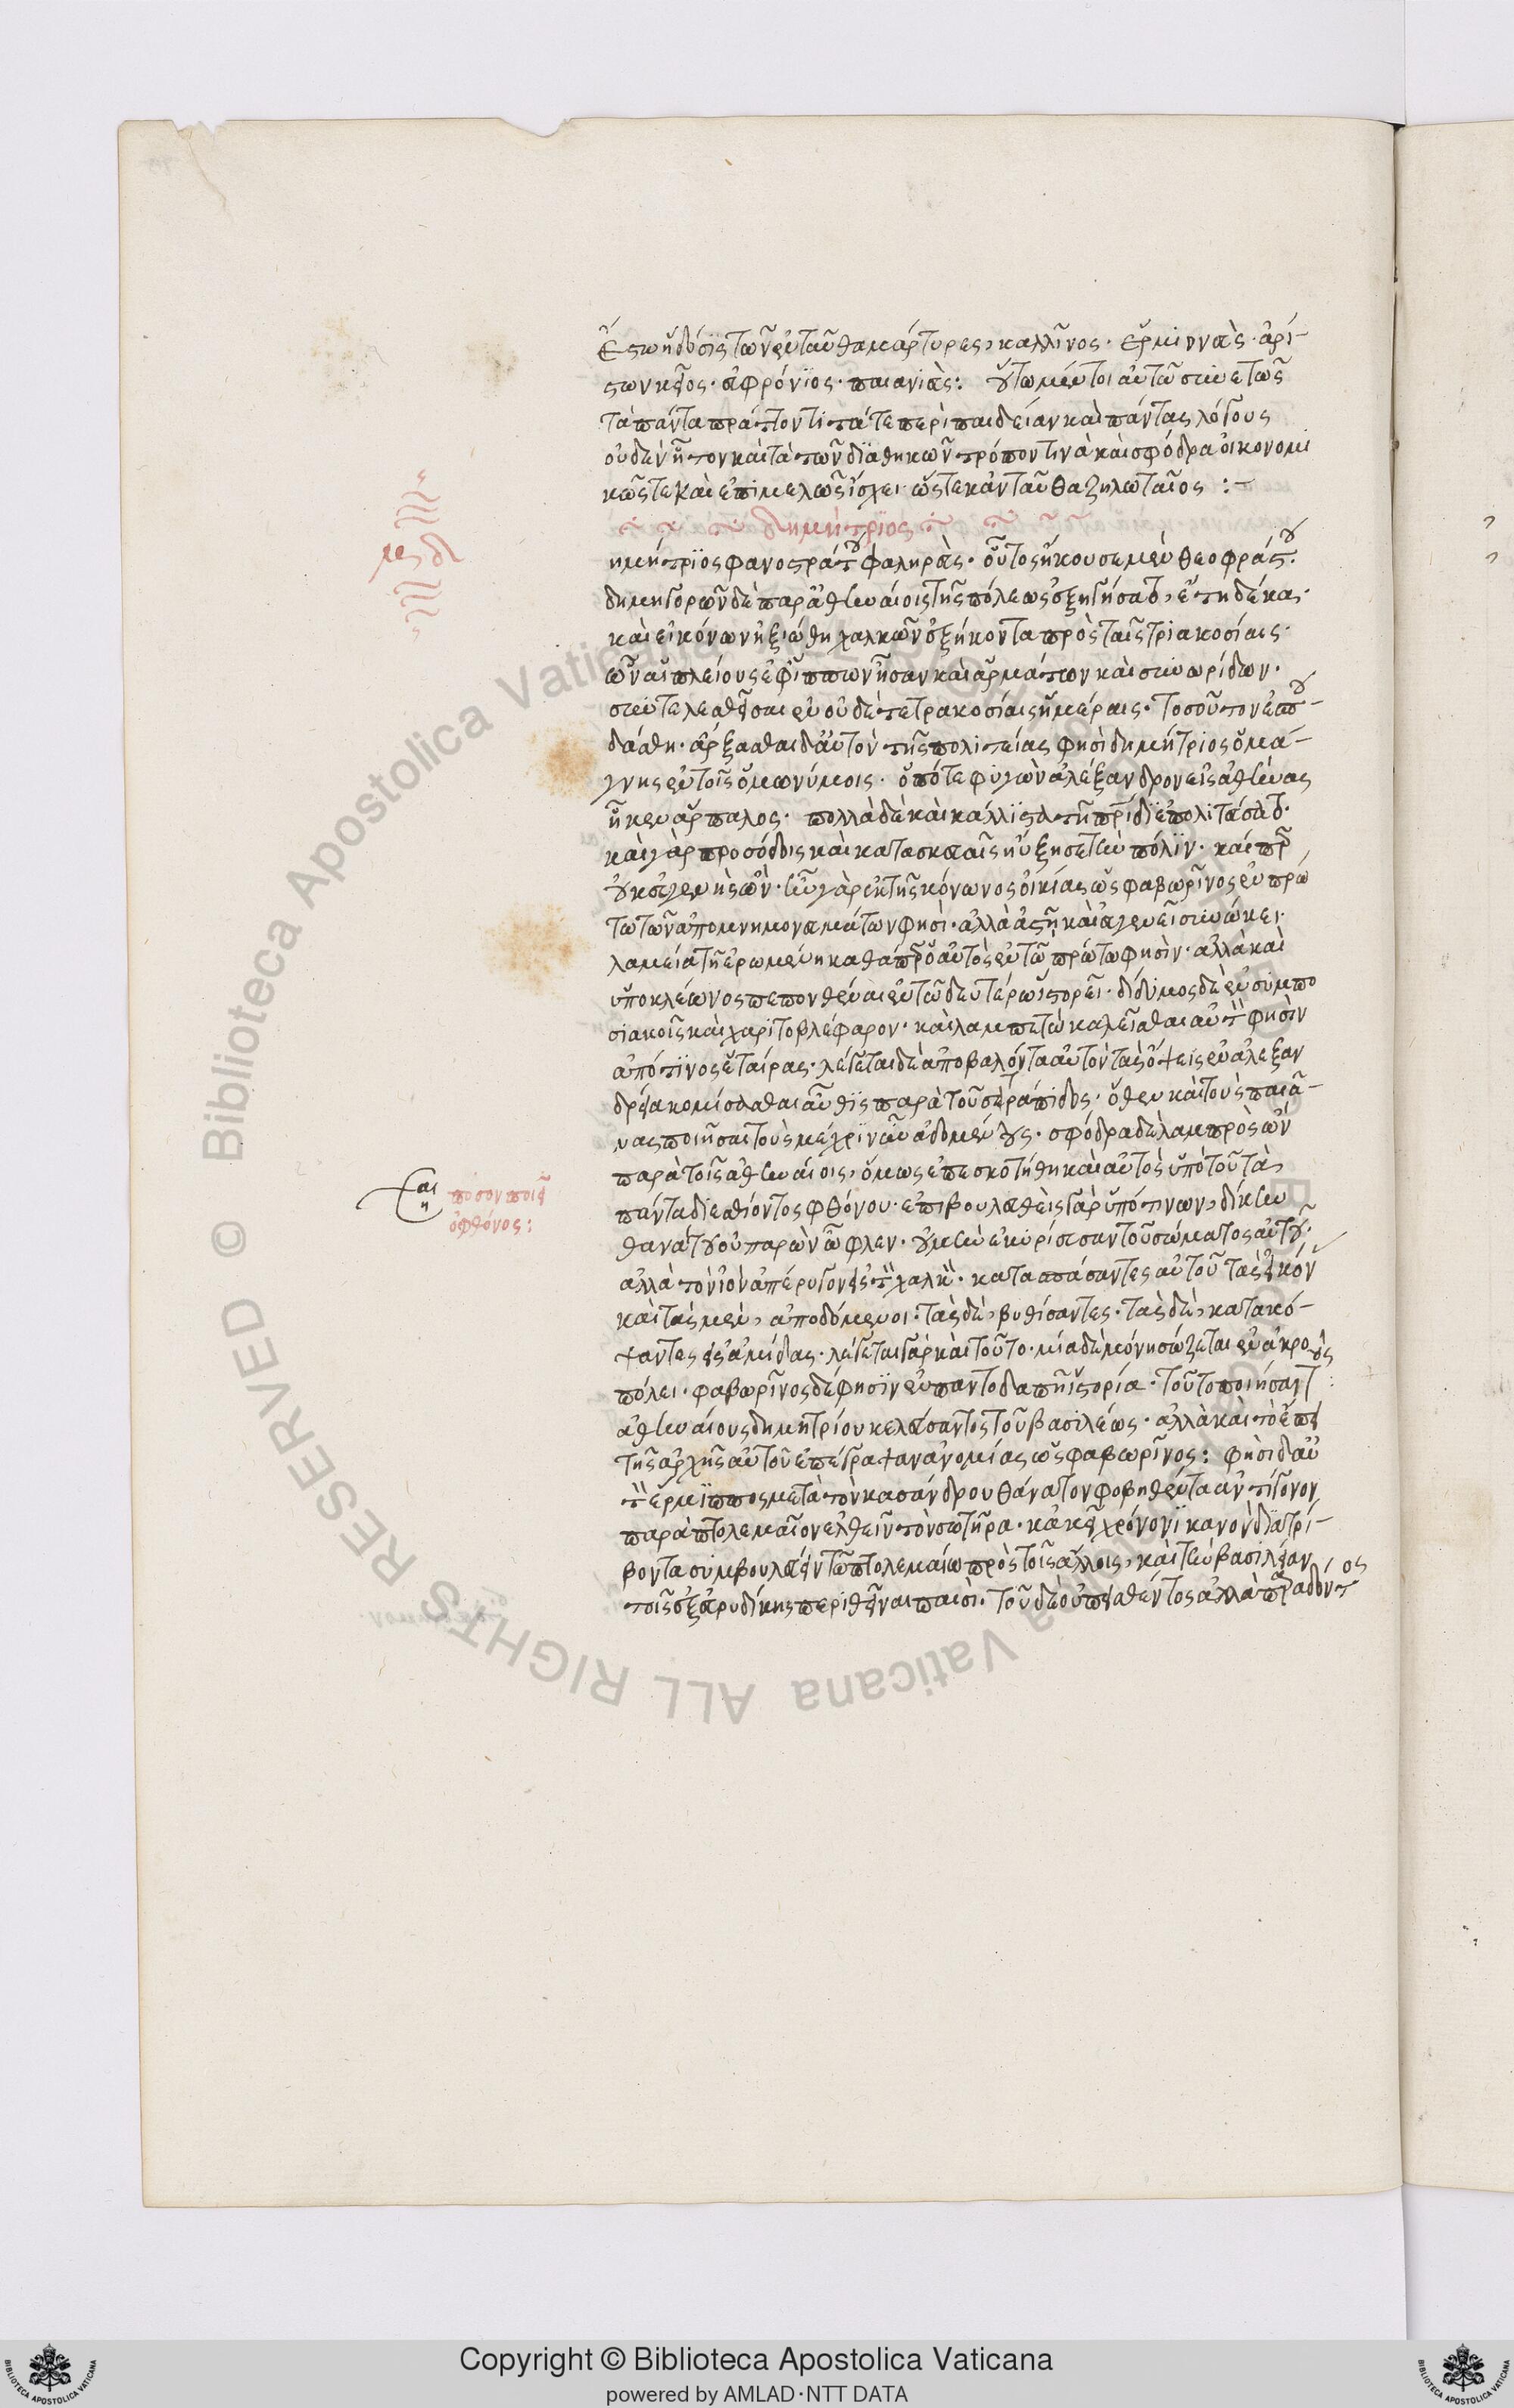 ἔστω ἡ δόσϊς τῶν ἐνταῦθα μάρτυρες, καλλῖνος. ἑρμιονεὺς. ἀρί-
στων κεῖος. εὐφρόνϊος. παιανιεὺς: οὕτω μέντοι αὐτῶ συνετῶς
τὰ πάντα πράττοντι τά τε περὶ παιδείαν καὶ πάντας λόγους
οὐδὲν ἧττον καὶ τὰ τῶν διαθηκῶν τρόπον τινὰ καὶ σφόδρα οἰκονομι
κῶς τε καὶ ἐπιμελῶς ἴσχει ὥστε κἀνταῦθα ζηλωταῖος :-
δημήτρϊος
ημήτρϊος φανοστράτου φαληρεύς. οὗτος ἤκουσε μὲν θεοφράστου.
δημηγορῶν δὲ παρ' ἀθηναίοις τῆς πόλεως ἐξηγήσατο, ἔτη δέκα.
καὶ εἰκόνων ἠξιώθη χαλκῶν ἐξήκοντα πρὸς ταῖς τριακοσίαις.
ὧν αἱ πλείους ἐφ' ἵππων ἦσαν καὶ ἁρμάτων καὶ συνωρίδων.
συντελεσθεῖσαι ἐν οὐδὲ τετρακοσίαις ἡμέραις. τοσοῦτον ἐσπου-
δάσθη. ἄρξασθαι δ' αὐτὸν τῆς πολιτείας φησὶ δημήτριος ὁ μά-
γνης ἐν τοῖς ὁμωνύμοις. ὁπότε φυγὼν ἀλέξανδρον εἰς ἀθήνας
ἧκεν ἅρπαλος. πολλὰ δὲ καὶ κάλλιστα τῆ πατρίδι ἐπολιτεύσατο.
καὶ γὰρ προσόδοις καὶ κατασκευαῖς ηὔξησε τὴν πόλϊν. καίπερ
οὐκ εὐγενὴς ὤν. ἦν γὰρ ἐκ τῆς κόνωνος οἰκίας ὡς φαβωρῖνος ἐν πρώ
τω τῶν ἀπομνημονευμάτων φησὶ. ἀλλὰ ἀστῆ καὶ εὐγενεῖ συνώκει.
λαμεία τῆ ἐρωμένη καθάπερ ὁ αὐτὸς ἐν τῶ πρώτω φησὶν. ἀλλὰ καὶ
ὑπο κλέωνος πεπονθέναι ἐν τῶ δευτέρω ἱστορεῖ. δίδυμος δὲ ἐν συμπο
σιακοῖς καὶ χαριτοβλέφαρον. καὶ λαμπετὼ καλεῖσθαι αὐτὸν φησὶν
ἀπό τινος ἑταίρας. λέγεται δὲ ἀποβαλόντα αὐτὸν τὰς ὄψεις ἐν ἀλεξαν
δρείᾳ κομίσασθαι αὖθϊς παρὰ τοῦ σαράπιδος. ὅθεν καὶ τοὺς παιᾶ-
νας ποιῆσαι τοὺς μέχρϊ νῦν ἀδομένους. σφόδρα δὲ λαμπρὸς ὢν
παρὰ τοῖς ἀθηναίοις, ὅμως ἐπεσκοτήθη καὶ αὐτὸς ὑπὸ τοῦ τὰ
πάντα διεσθίοντος φθόνου. ἐπιβουλευθεὶς γὰρ ὑπό τινων, δίκην
θανάτου οὐ παρὼν ὦφλεν. οὐ μὴν ἐκυρίευσαν τοῦ σώματος αὐτοῦ.
ἀλλὰ τὸν ἰὸν ἀπέρυγον εἰς τὸν χαλκόν. κατασπάσαντες αὐτοῦ τὰς εἰκόν
καὶ τὰς μὲν, ἀποδόμενοι. τὰς δὲ, βυθίσαντες. τὰς δὲ, κατακό-
ψαντες εἰς ἀμίδας. λέγεται γὰρ καὶ τοῦτο. μία δὲ μόνη σώζεται ἐν ἀκρο
πόλει. φαβωρῖνος δέ φησϊν ἐν παντοδαπῆ ἱστορία. τοῦτο ποιῆσαι τοὺς
ἀθηναίους δημητρίου κελεύσαντος τοῦ βασιλέως. ἀλλὰ καὶ τὸ ἔτει
τῆς ἀρχῆς αὐτοῦ ἐπέγραψαν ἀνομίας ὡς φαβωρῖνος: φησὶ δ' αὐ
τὸν ἕρμϊππος μετὰ τὸν κασάνδρου θάνατον φοβηθέντα ἀντίγονον
παρὰ πτολεμαῖον ἐλθεῖν τὸν σωτῆρα. κἀκεῖ χρόνον ἱκανὸν διατρί-
βοντα συμβουλεύειν τῶ πτολεμαίω πρὸς τοῖς ἄλλοις, καὶ τὴν βασιλείαν
τοῖς ἐξ εὐρυδίκης περιθεῖναι παισὶ. τοῦ δὲ οὐ πεισθέντος ἀλλὰ παραδόντος
πόσον ποιεῖ
ὁ φθόνος: